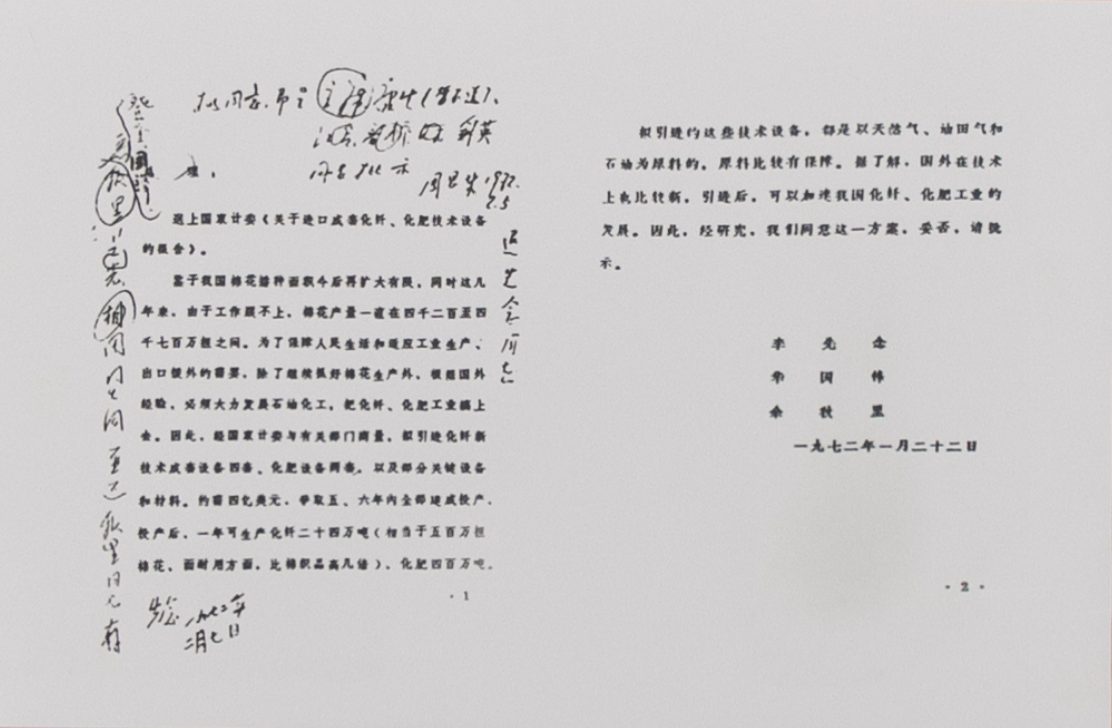 拟同意，即呈主席
周恩来1972.
2.5
送上国家计委《关于进口成套化纤、化肥技术设备
的报告》。
鉴于我国棉花播种面积今后再扩大有限，同时这几
年来，由于工作跟不上，棉花产量一直在四千二百至四
千七百万担之间。为了保障人民生活和适应工业生产、
出口援外的需要，除了继续抓好棉花生产外，根据国外
经验，必须大力发展石油化工，把化纤、化肥工业搞上
去。因此，经国家计委与有关部门商量，拟引进化纤新
技术成套设备四套、化肥设备两套，以及部分关键设备
和材料。约需四亿美元，争取五、六年内全部建成投产。
投产后，一年可生产化纤二十四万吨（相当于五百万担
棉花，而耐用方面，比棉织品高几倍），化肥四百万吨。
退先念同志
先念 一九七二年
二月七日
·1
拟引进的这些技术设备，都是以天然气、油田气和
石油为原料的，原料比较有保障。据了解，国外在技术
上也比较新，引进后，可以加速我国化纤、化肥工业的
发展。因此，经研究，我们同意这一方案，妥否，请批
示。
李先念
华国锋
余秋里
一九七二年一月二十二日
·2·